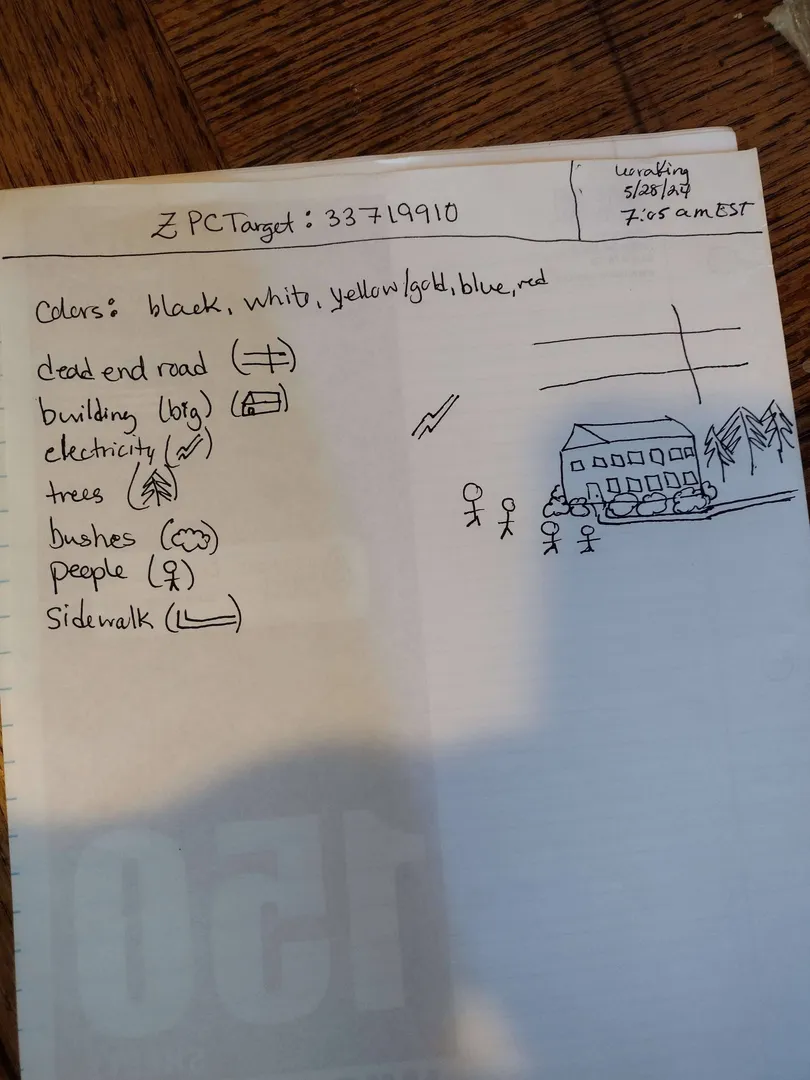 Z PC Target: 33719910
5/28/24
7:05 am EST
Colors: black, white, yellow/gold, blue, red
dead end road ( )
building (big) ( )
electricity ( )
trees ( )
bushes ( )
people ( )
Sidewalk ( )
150